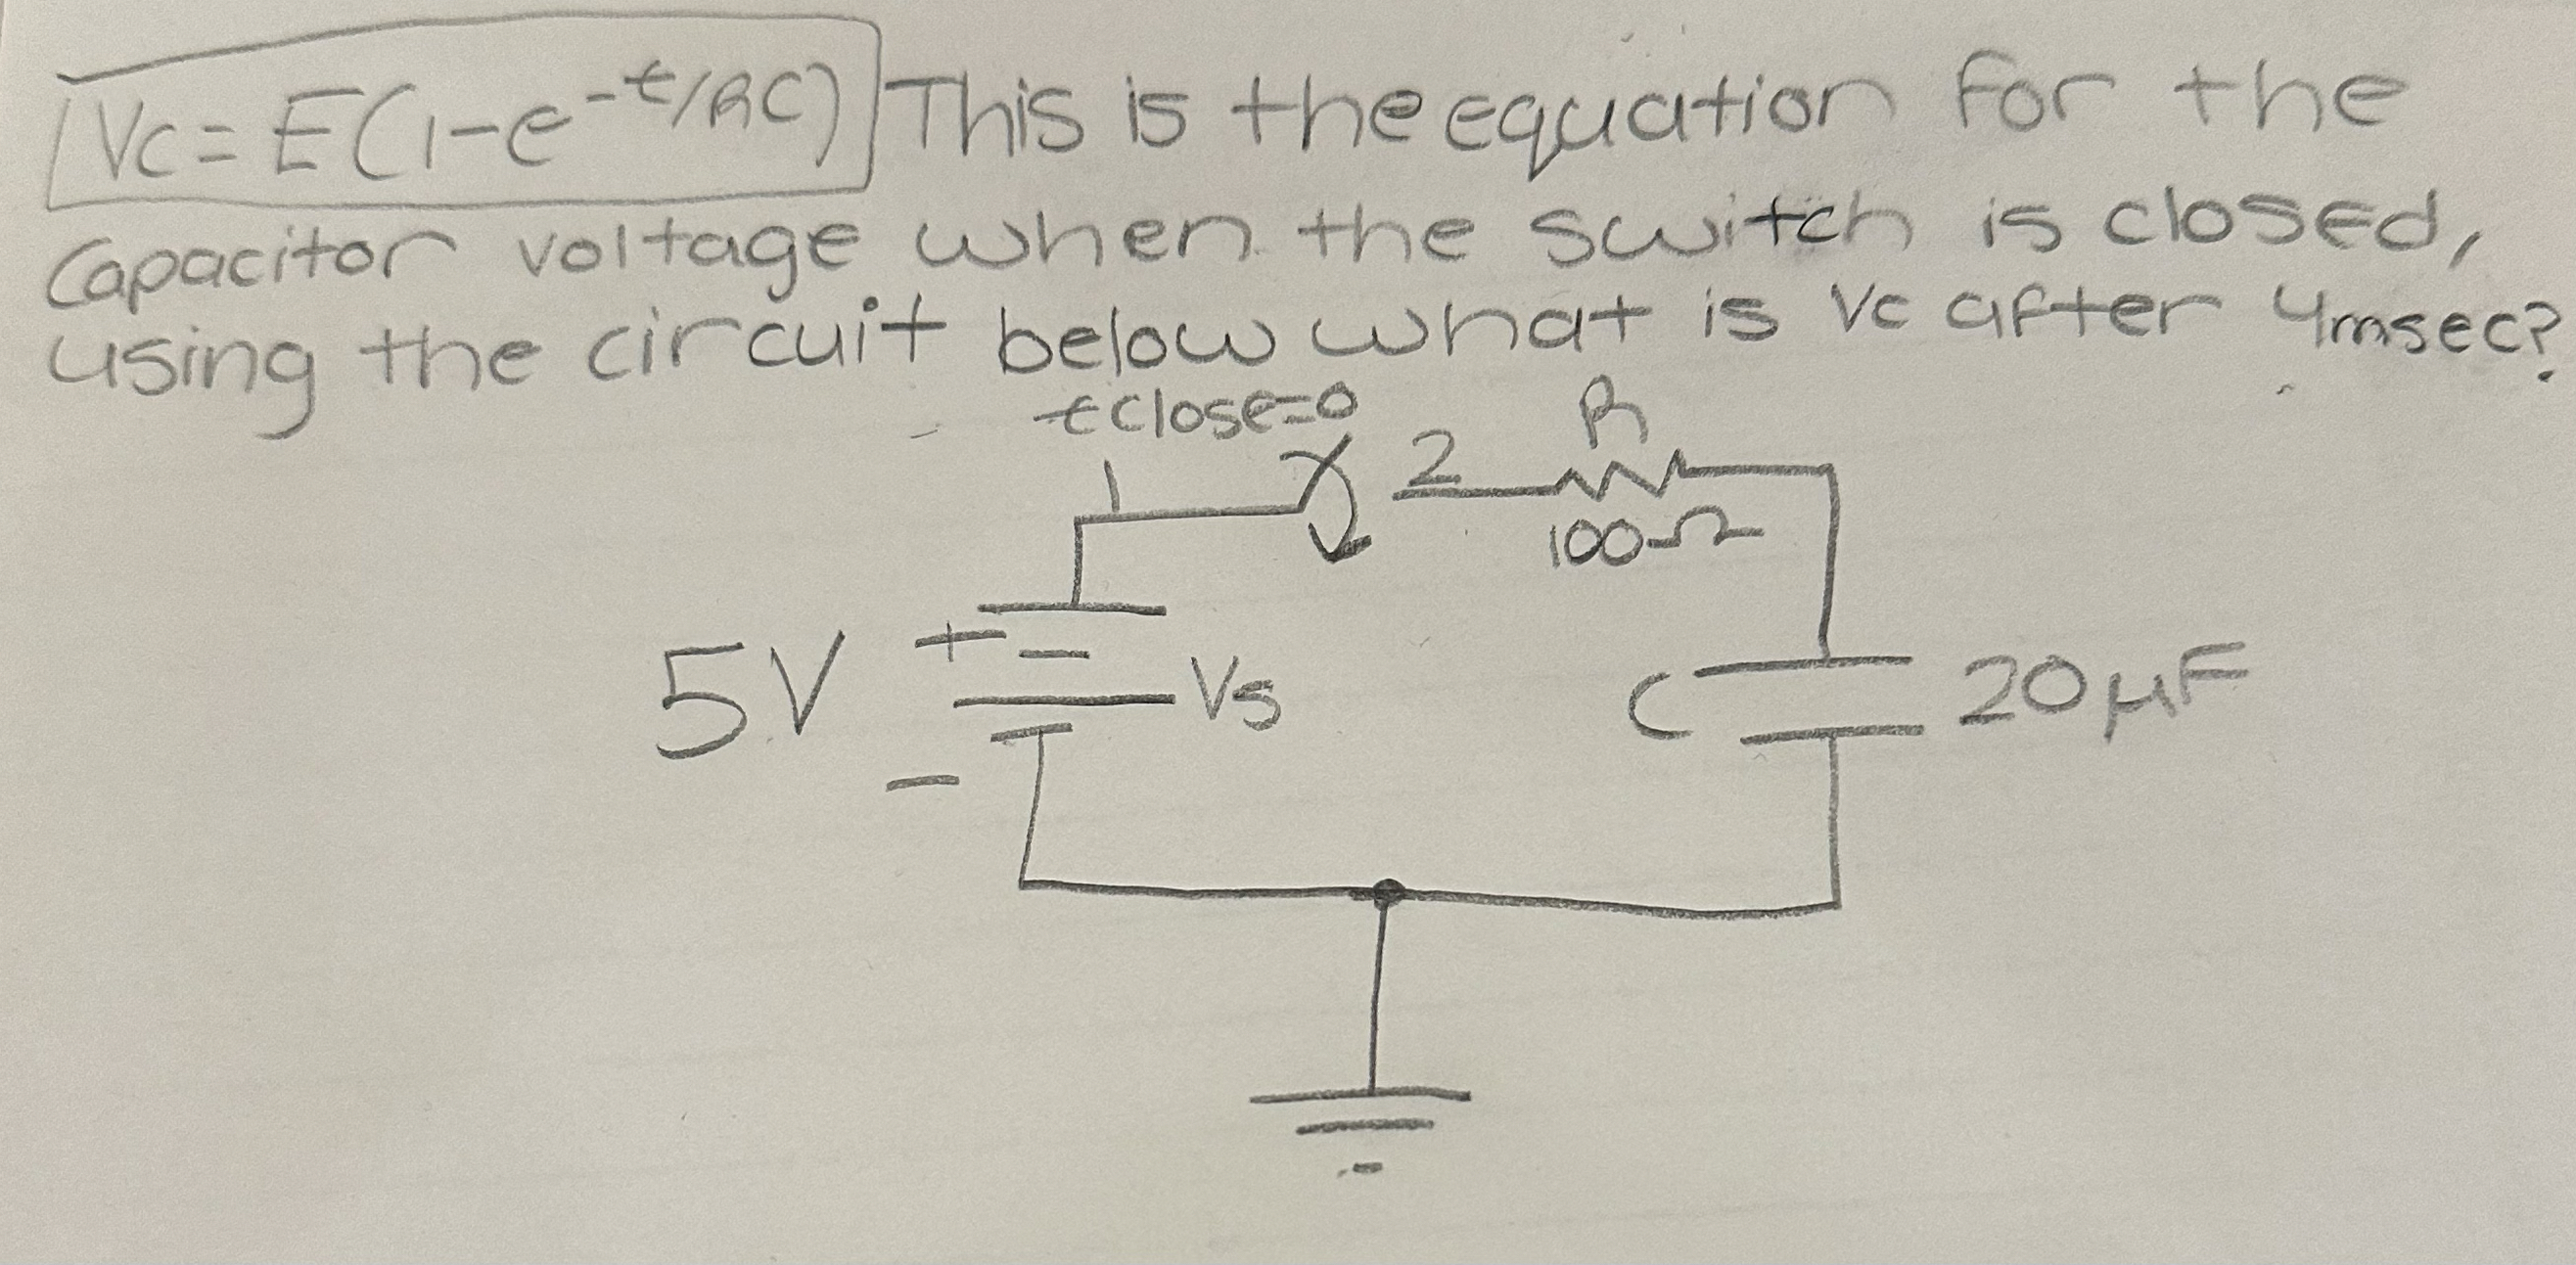 Vc = E(1-e^-t/RC) This is the equation for the
Capacitor voltage when the switch is closed,
using the circuit below what is Vc after 4msec?
tclose=0
1
2
R
100Ω
5V
+
-
Vs
C
20μF